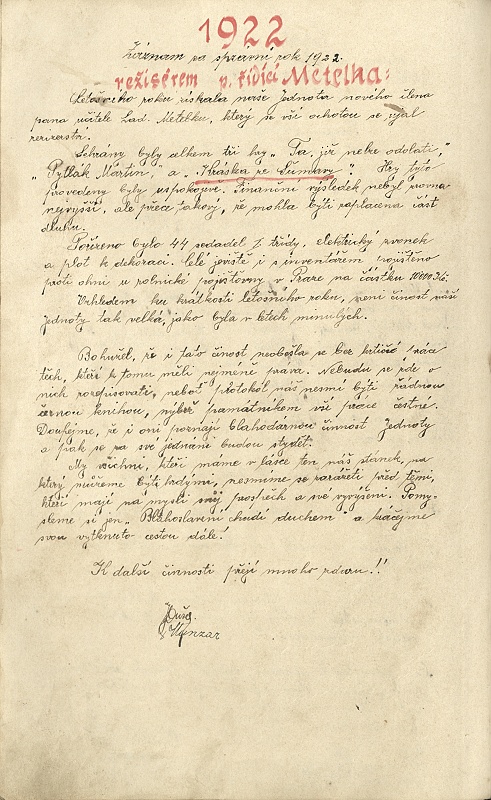 1922
Záznam za správní rok 1922.
režisérem p. řídící Metelka:
Letošního roku získala naše Jednota nového člena
pana učitele Lad. Metelku, který se vší ochotou se ujal
režizerství.
Sehrány byly celkem tři hry „Ta, již nelze odolati,"
„Pytlák Martin," a „Kráska ze Šumavy". Hry tyto
provedeny byly uspokojivě. Finanční výsledek nebyl zrovna
nejvyšší, ale přece takový, že mohla býti zaplacena část
dluhu.
Pořízeno bylo 44 sedadel I. třídy, elektrický zvonek
a plot k dekoraci. Celé jeviště i s inventářem pojištěno
proti ohni u rolnické pojišťovny v Praze na částku 10000 Kč.
Vzhledem ku krátkosti letošního roku, není činost naší
Jednoty tak velká, jako byla v letech minulých.
Bohužel, že i tato činost neobešla se bez kritisování
těch, kteří k tomu měli nejmeně práva. Nebudu se zde o
nich rozepisovati, neboť protokol náš nesmí býti řádnou
černou knihou, nýbrž památníkem vší práce čestné.
Doufejme, že i oni poznají blahodárnou činnost Jednoty
a pak se za své jednání budou stydět.
My všichni, kteří máme v lásce ten náš stánek, na
který můžeme býti hrdými, nesmíme se zaraziti před těmi,
kteří mají na mysli svůj prospěch a své vyvýšení. Pomy-
sleme si jen „Blahoslavení chudí duchem" a kráčejme
svou vytknuto cestou dále!
K další činnosti přeji mnoho zdaru!!